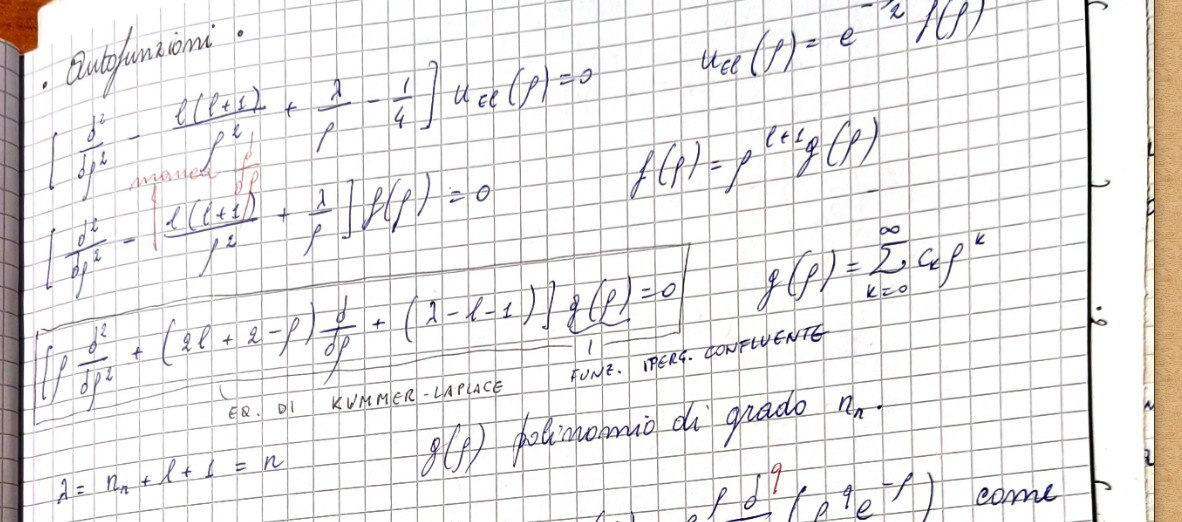 · Autofunzioni ·
[ d²/dρ² - l(l+1)/ρ² + λ/ρ - 1/4 ] u_El(ρ) = 0    u_El(ρ) = e^(-ρ/2) f(ρ)
manca d/dρ
[ d²/dρ² - l(l+1)/ρ² + λ/ρ ] f(ρ) = 0    f(ρ) = ρ^(l+1) g(ρ)
[ ρ d²/dρ² + (2l + 2 - ρ) d/dρ + (λ - l - 1) ] g(ρ) = 0    g(ρ) = Σ_(k=0)^∞ c_k ρ^k
EQ. DI KUMMER-LAPLACE    FUNZ. IPERG. CONFLUENTE
g(ρ) polinomio di grado n_r.
λ = n_r + l + 1 = n
d^q (ρ^q e^(-ρ)) come